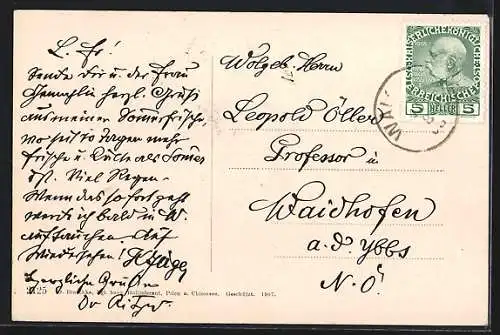 L. Fr!
Sende dir u. der Frau
Gemahlin herzl. Grüße
aus meiner Sommerfrische,
wo seit 10 Tagen mehr
Frische u. als Sommer
ist. Viel Regen.
Wenn das so fort geht
werde ich bald in W.
auftauchen. Auf
Wiedersehen!
Herzliche Grüße
Dr
Wolgeb. Herrn
Leopold Öller
Professor in
Waidhofen
a. d. Ybbs
N. Ö.
KAISERLICHE KÖNIGLICHE
ÖSTERREICHISCHE
5 HELLER 5
Prien a. Chiemsee. Geschützt. 1907.